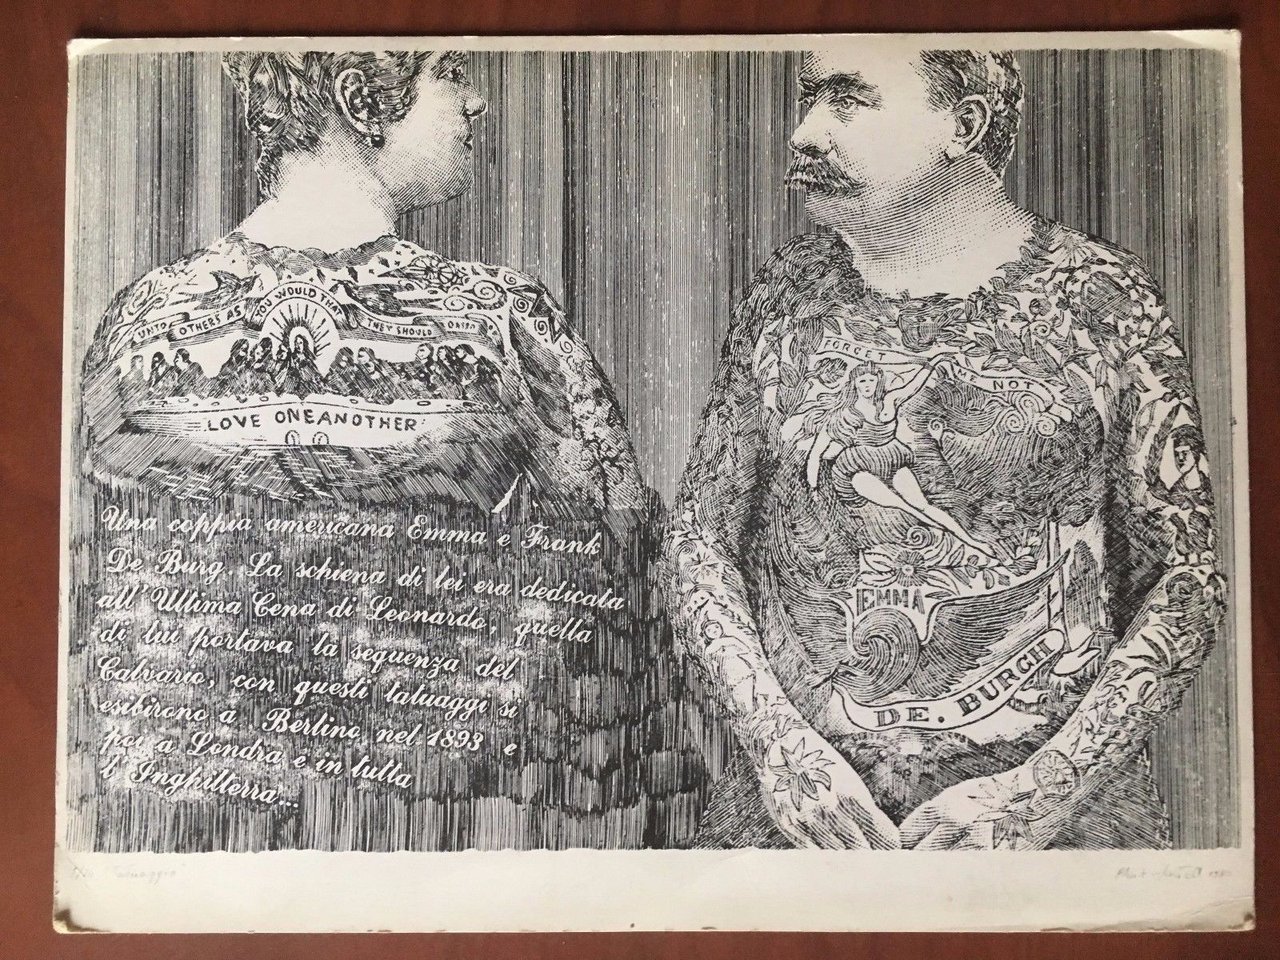 UNTO OTHERS AS YOU WOULD THAT THEY SHOULD
LOVE ONE ANOTHER
FORGET ME NOT
EMMA
DE. BURGH
Una coppia americana Emma e Frank
De Burg.. La schiena di lei era dedicata
all'Ultima Cena di Leonardo, quella
di lui portava la sequenza del
Calvario, con questi tatuaggi si
esibirono a Berlino nel 1893 e
poi a Londra e in tutta
l'Inghilterra...